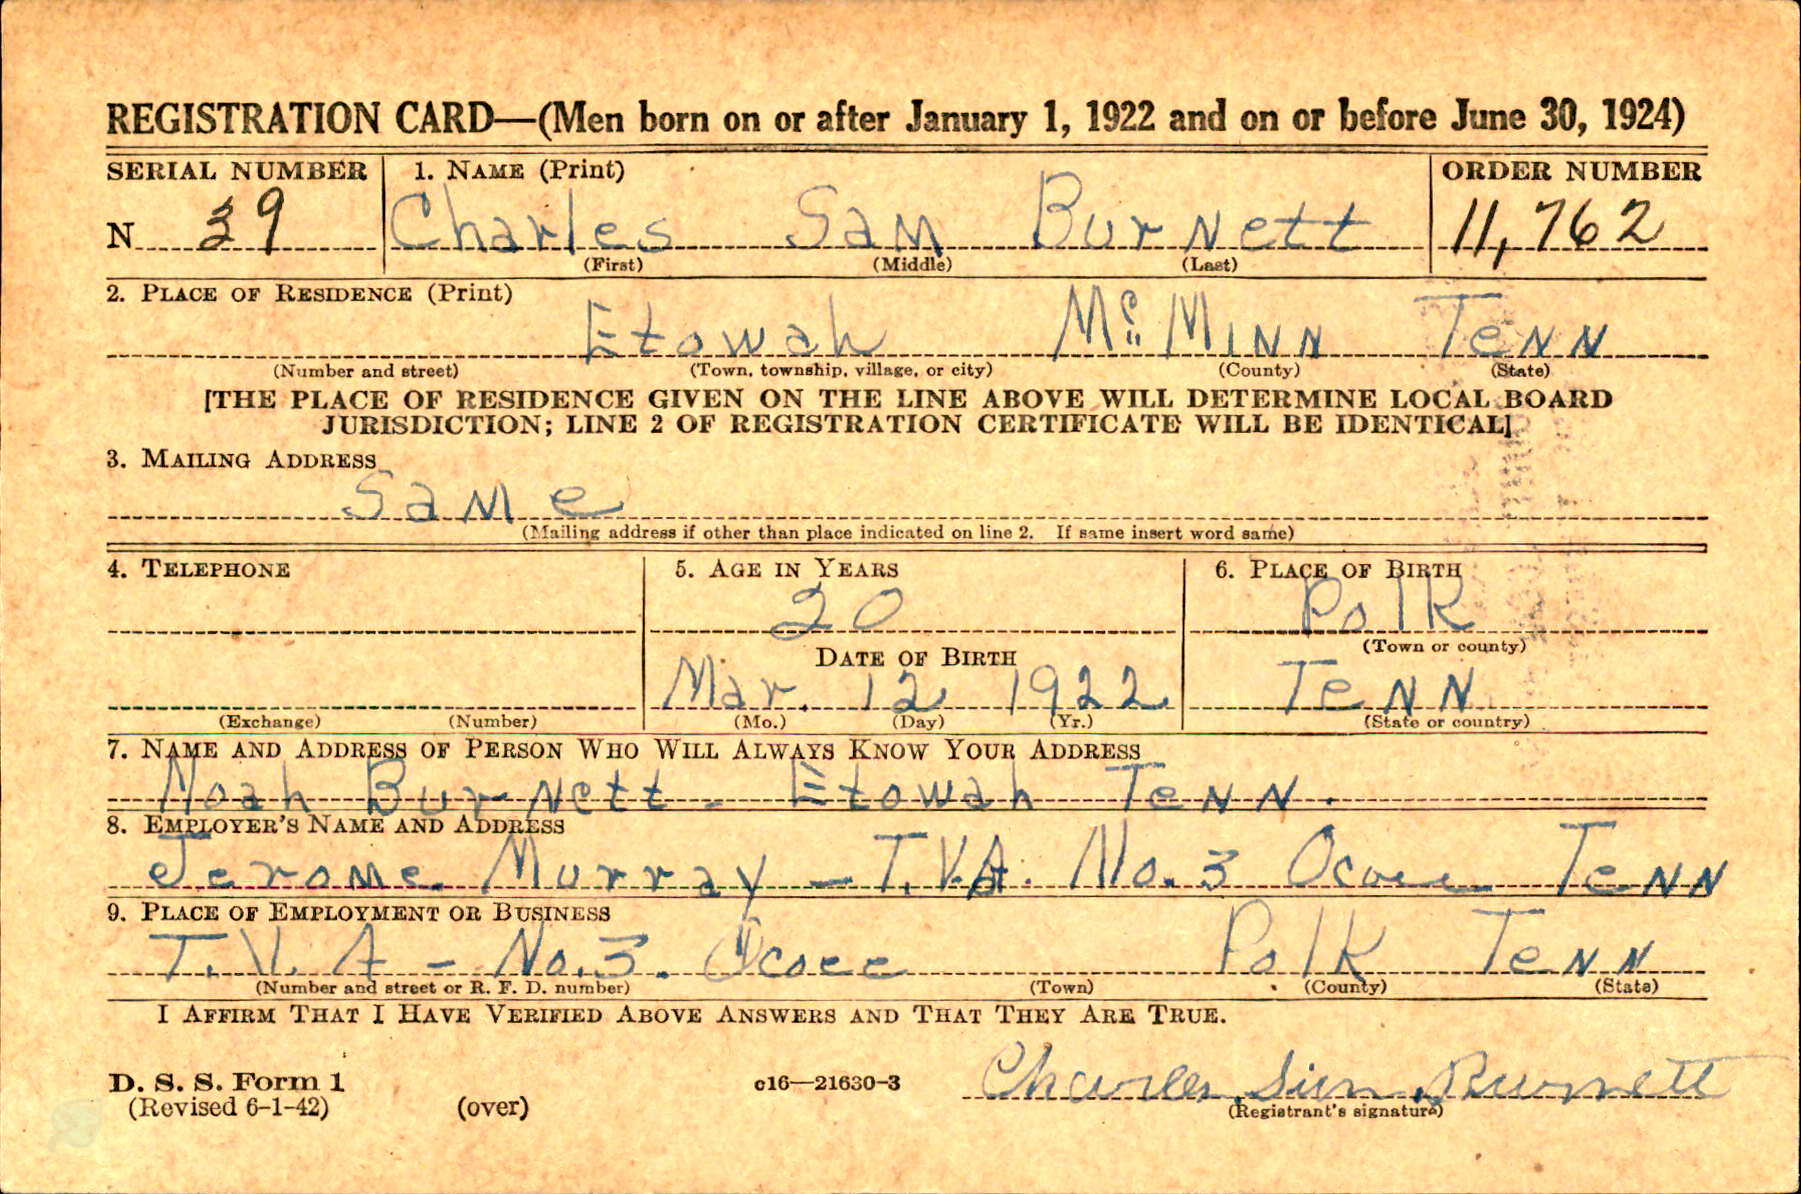 REGISTRATION CARD—(Men born on or after January 1, 1922 and on or before June 30, 1924)
SERIAL NUMBER 1. NAME (Print) ORDER NUMBER
N 39 Charles Sam Burnett 11,762
(First) (Middle) (Last)
2. PLACE OF RESIDENCE (Print)
Etowah Mc. Minn Tenn
(Number and street) (Town, township, village, or city) (County) (State)
[THE PLACE OF RESIDENCE GIVEN ON THE LINE ABOVE WILL DETERMINE LOCAL BOARD
JURISDICTION; LINE 2 OF REGISTRATION CERTIFICATE WILL BE IDENTICAL]
3. MAILING ADDRESS
Same
(Mailing address if other than place indicated on line 2. If same insert word same)
4. TELEPHONE 5. AGE IN YEARS 6. PLACE OF BIRTH
20 Polk
(Town or county)
DATE OF BIRTH
Mar. 12 1922 Tenn
(Exchange) (Number) (Mo.) (Day) (Yr.) (State or country)
7. NAME AND ADDRESS OF PERSON WHO WILL ALWAYS KNOW YOUR ADDRESS
Noah Burnett - Etowah Tenn.
8. EMPLOYER'S NAME AND ADDRESS
Jerome Murray - T.V.A. No. 3 Ocoee Tenn
9. PLACE OF EMPLOYMENT OR BUSINESS
T.V.A - No. 3. Ocoee Polk Tenn
(Number and street or R. F. D. number) (Town) (County) (State)
I AFFIRM THAT I HAVE VERIFIED ABOVE ANSWERS AND THAT THEY ARE TRUE.
D. S. S. Form 1
(Revised 6-1-42) (over) c16—21630-3 Charles Sim Burnett
(Registrant's signature)